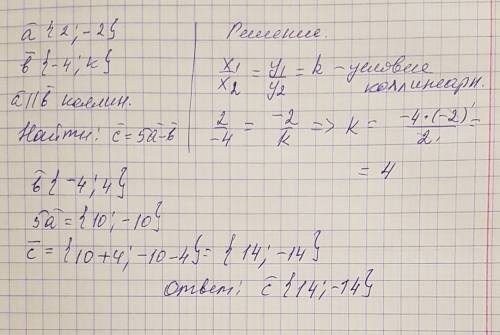 ā {2; -2}
b̄ {-4; k}
ā || b̄ коллин.
Найти: c̄ = 5ā - b̄
Решение.
x₁/x₂ = y₁/y₂ = k - условие коллинеарн.
2/-4 = -2/k => k = -4·(-2)/2 =
= 4
b̄ {-4; 4}
5ā = {10; -10}
c̄ = {10+4; -10-4} = {14; -14}
Ответ: c̄ {14; -14}